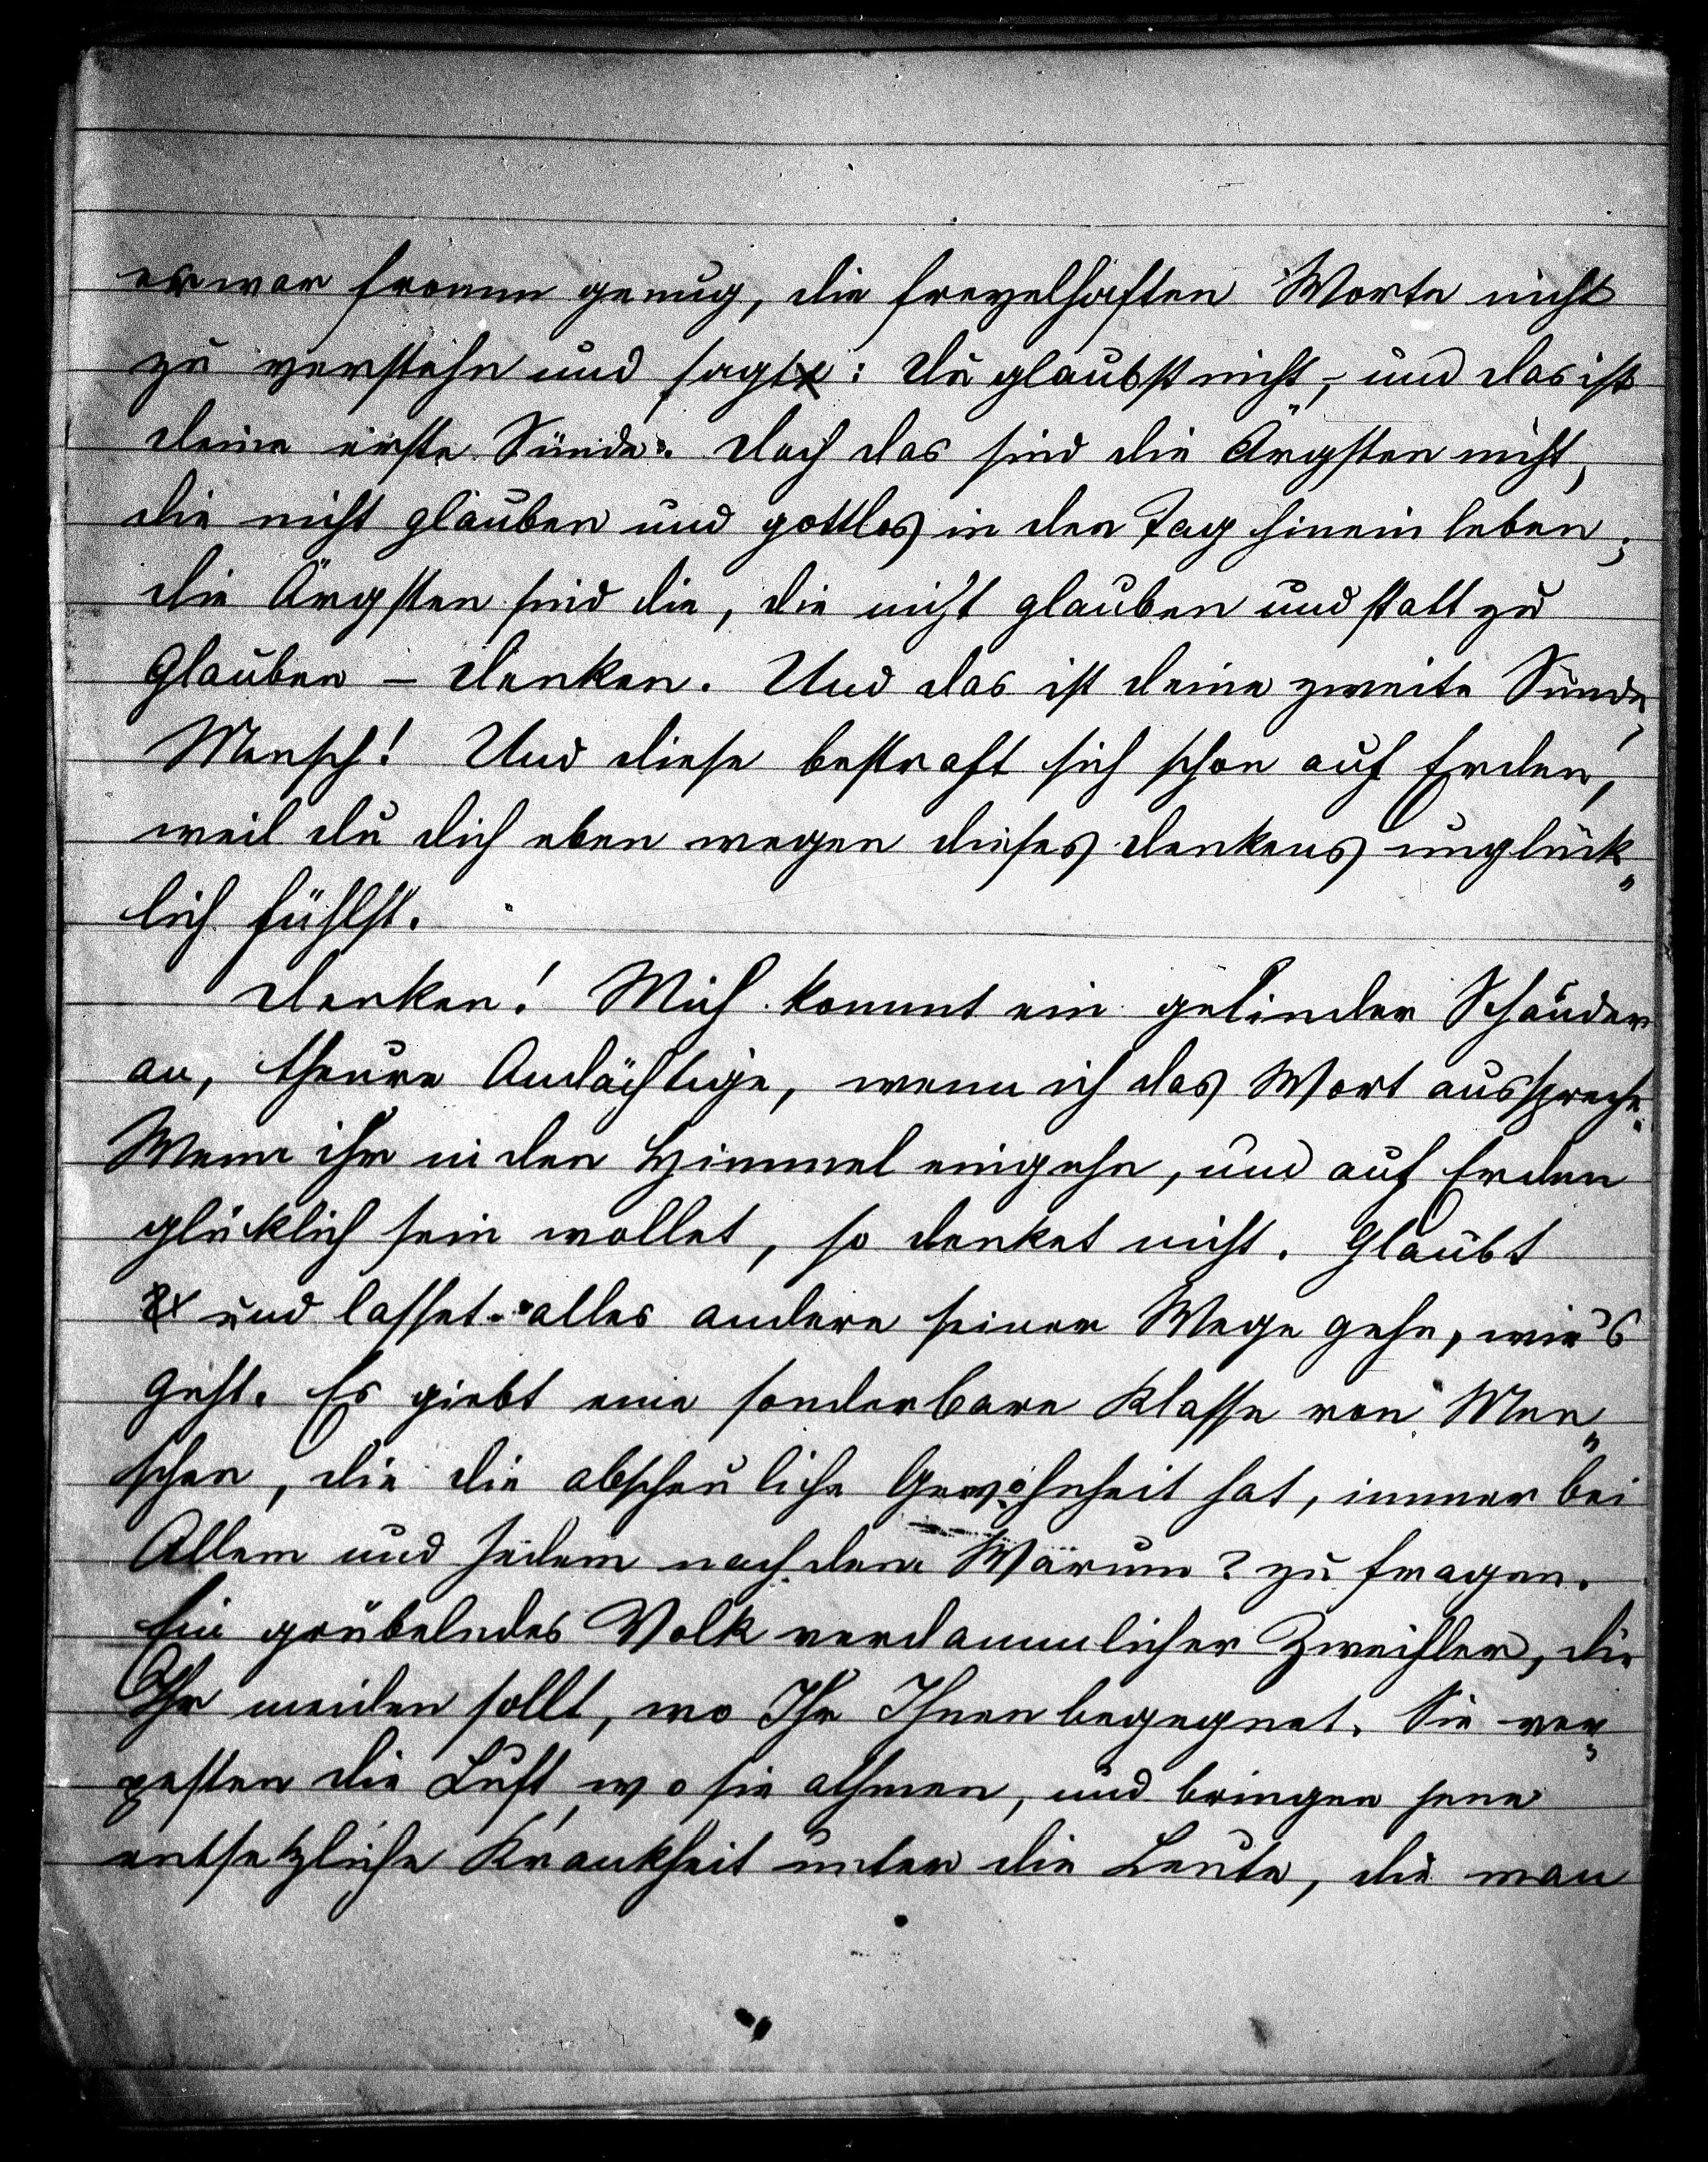 er war fromm genug, die frevelhaften Worte nicht
zu verstehn und sagte: Du glaubst nicht, und das ist
deine erste Sünde. Doch das sind die Ärgsten nicht,
die nicht glauben und gottlos in den Tag hinein leben;
die Ärgsten sind die, die nicht glauben und statt zu
Glauben – denken. Und das ist deine zweite Sünde,
Mensch! Und diese bestraft sich schon auf Erden,
weil du dich eben wegen dieses denkens unglück„
lich fühlst.
Denken! Mich kommt ein gelinder Schauder
an, theure Andächtige, wenn ich das Wort ausspreche.
Wenn ihr in den Himmel eingehn, und auf Erden
glücklich sein wollet, so denket nicht. Glaubt
und lasset alles andere seiner Wege gehn, wie's
geht. Es giebt eine sonderbare Klasse von Men„
schen, die die abscheuliche Gewohnheit hat, immer bei
Allem und Jedem nach dem Warum? zu fragen.
Ein grübelndes Volk verdammlicher Zweifler, die
Ihr meiden sollt, wo Ihr Ihnen begegnet. Sie ver„
pesten die Luft, wo sie athmen, und bringen jene
entsetzliche Krankheit unter die Leute, die man